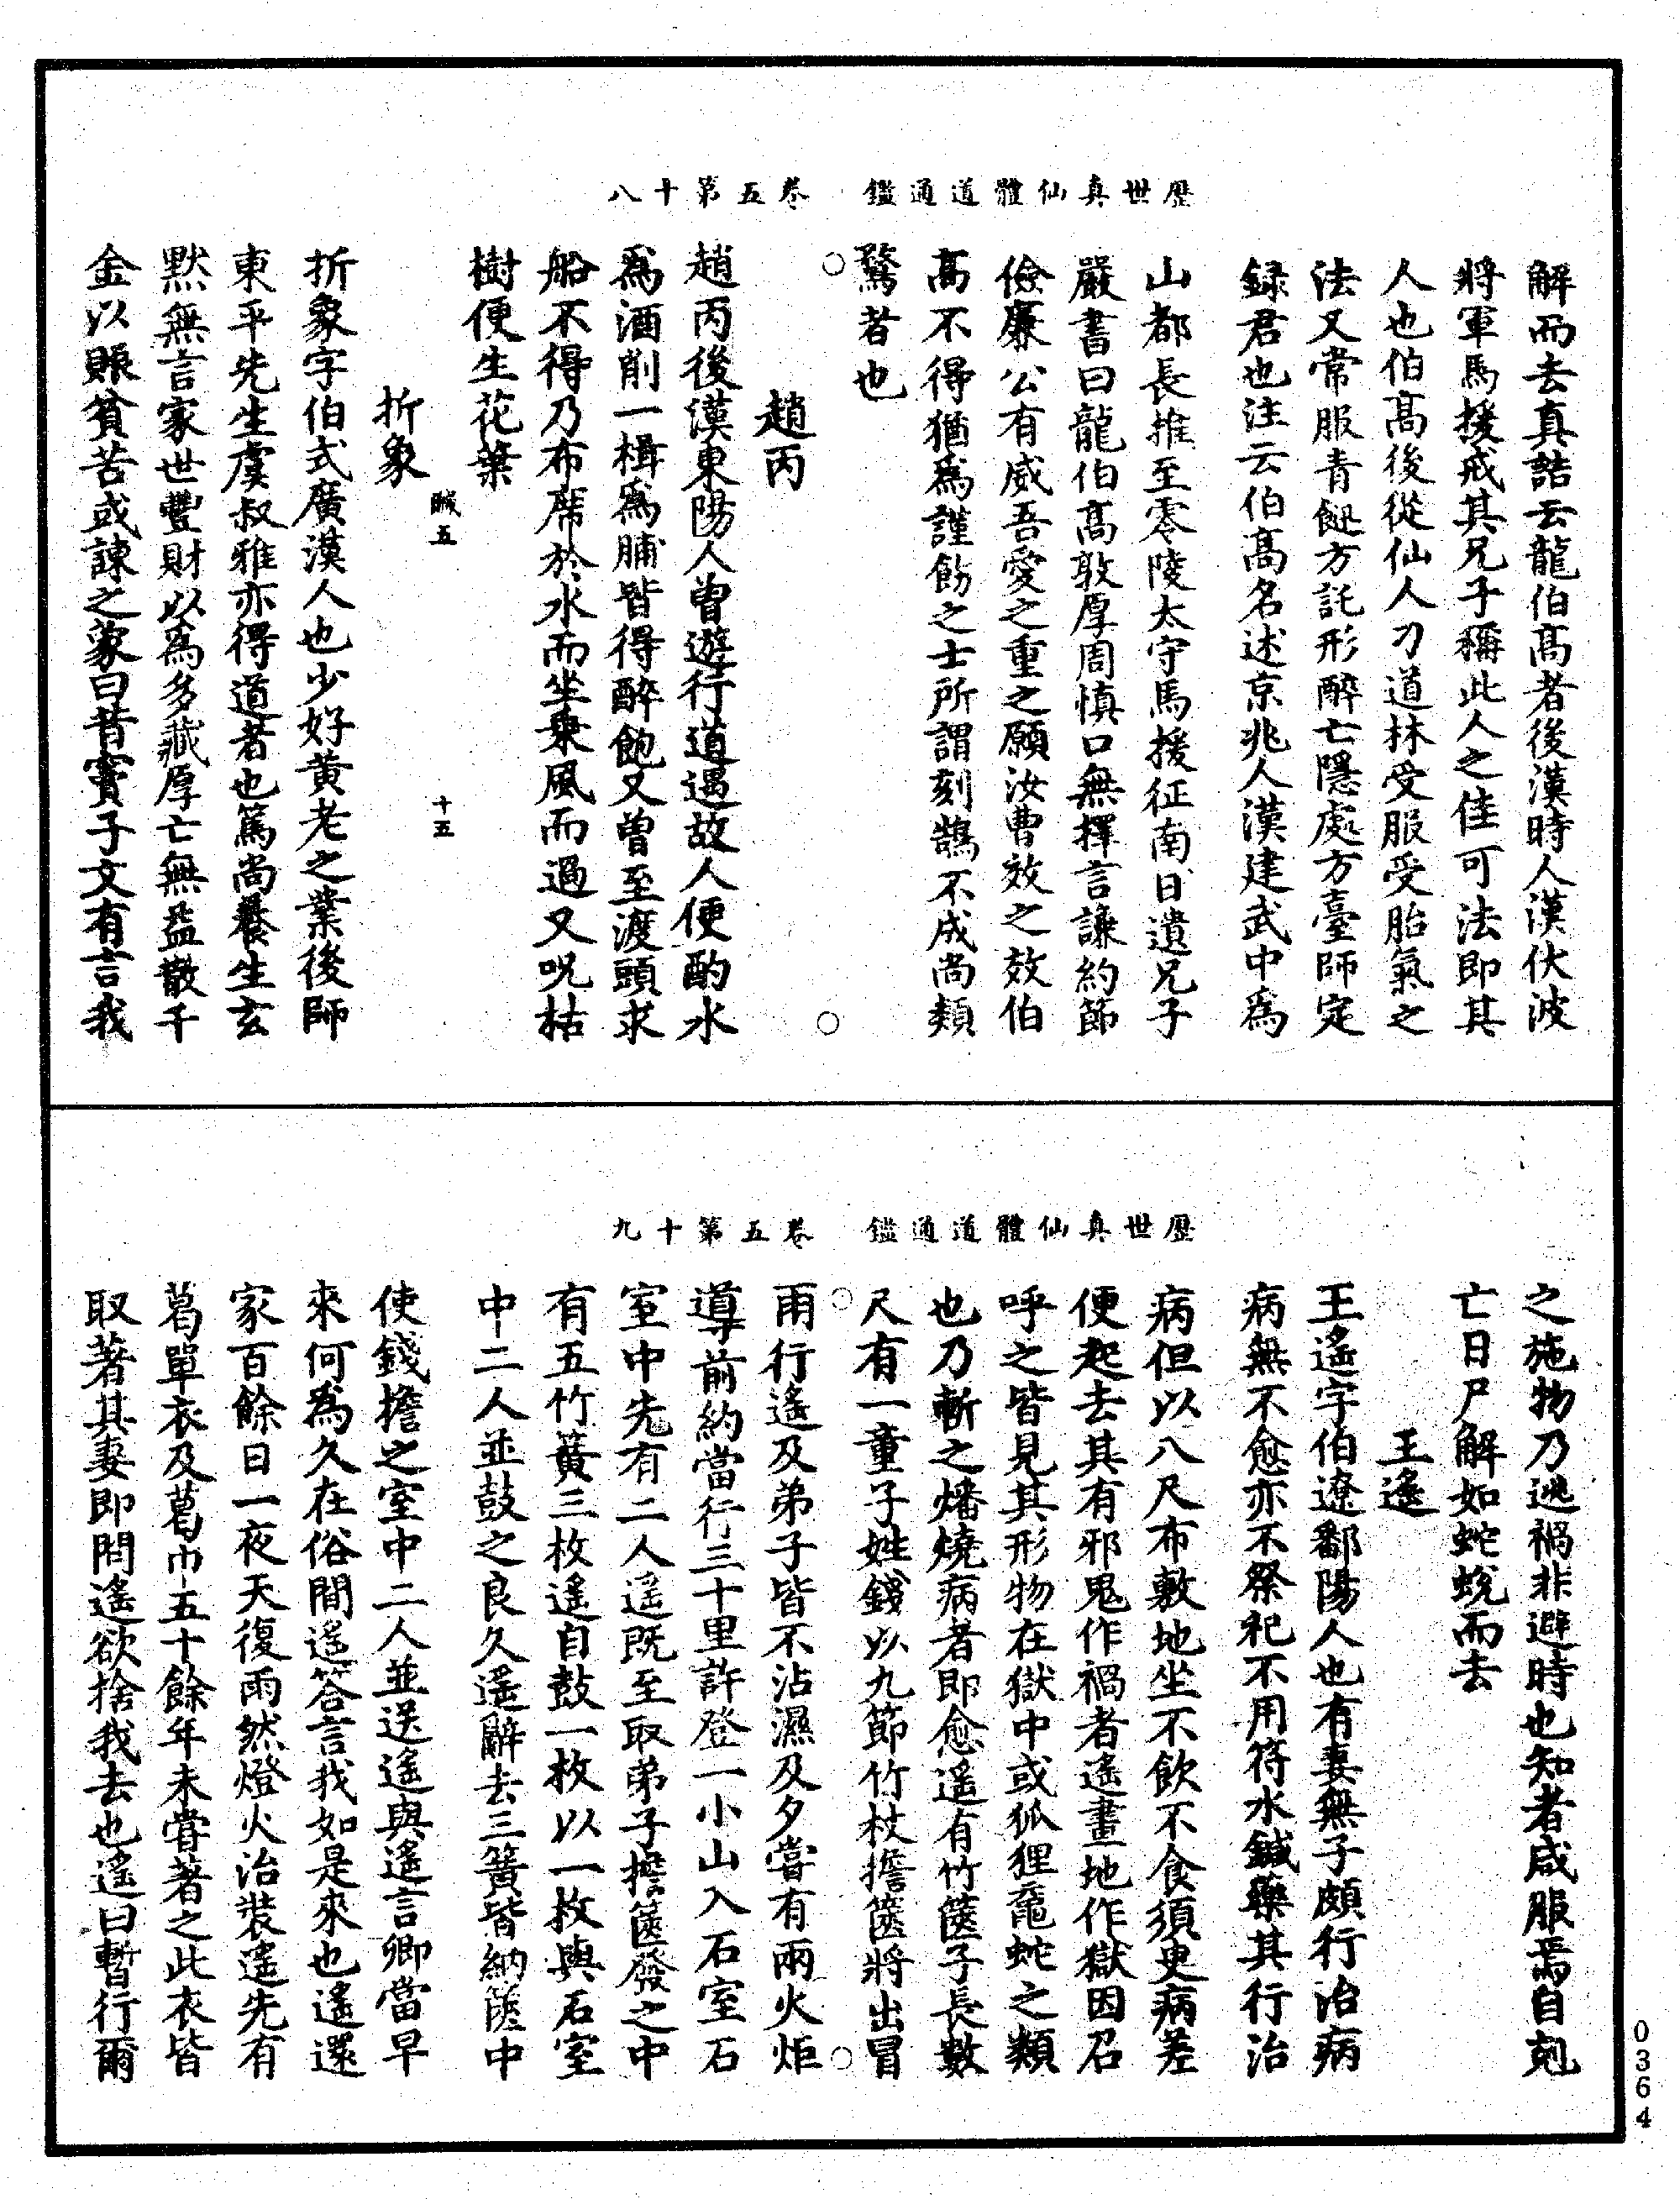 歷世真仙體道通鑑　卷五第十八
解而去真誥云龍伯高者後漢時人漢伏波
將軍馬援戒其兄子稱此人之佳可法即其
人也伯高後從仙人刀道林受服受胎氣之
法又常服青䭀方託形醉亡隱處方臺師定
録君也注云伯高名述京兆人漢建武中爲
山都長推至零陵太守馬援征南日遺兄子
嚴書曰龍伯高敦厚周慎口無擇言謙約節
儉廉公有威吾愛之重之願汝曹效之效伯
高不得猶爲謹飭之士所謂刻鵠不成尚類
鶩者也
趙丙
趙丙後漢東陽人曾遊行道遇故人便酌水
爲酒削一楫爲脯皆得醉飽又曾至渡頭求
船不得乃布席於水而坐乗風而過又呪枯
樹便生花葉
醎五　十五
折象
折象字伯式廣漢人也少好黄老之業後師
東平先生虞叔雅亦得道者也篤尚養生玄
默無言家世豐財以爲多藏厚亡無益散千
金以賑貧苦或諫之象曰昔竇子文有言我
歷世真仙體道通鑑　卷五第十九
之施物乃逃禍非避時也知者咸服焉自剋
亡日尸解如蛇蛻而去
王遙
王遙字伯遼鄱陽人也有妻無子頗行治病
病無不愈亦不祭祀不用符水鍼藥其行治
病但以八尺布敷地坐不飲不食須臾病差
便起去其有邪鬼作禍者遙畫地作獄因召
呼之皆見其形物在獄中或狐狸鼉蛇之類
也乃斬之燔燒病者即愈遙有竹篋子長數
尺有一童子姓錢以九節竹杖擔篋將出冒
雨行遙及弟子皆不沾濕及夕嘗有兩火炬
導前約當行三十里許登一小山入石室石
室中先有二人遙既至取弟子擔篋發之中
有五竹簧三枚遙自鼓一枚以一枚與石室
中二人並鼓之良久遙辭去三簧皆納篋中
使錢擔之室中二人並送遙與遙言卿當早
來何爲久在俗間遙答言我如是來也遙還
家百餘日一夜天復雨然燈火治裝遙先有
葛單衣及葛巾五十餘年未嘗著之此衣皆
取著其妻即問遙欲捨我去也遙曰暫行爾
0364